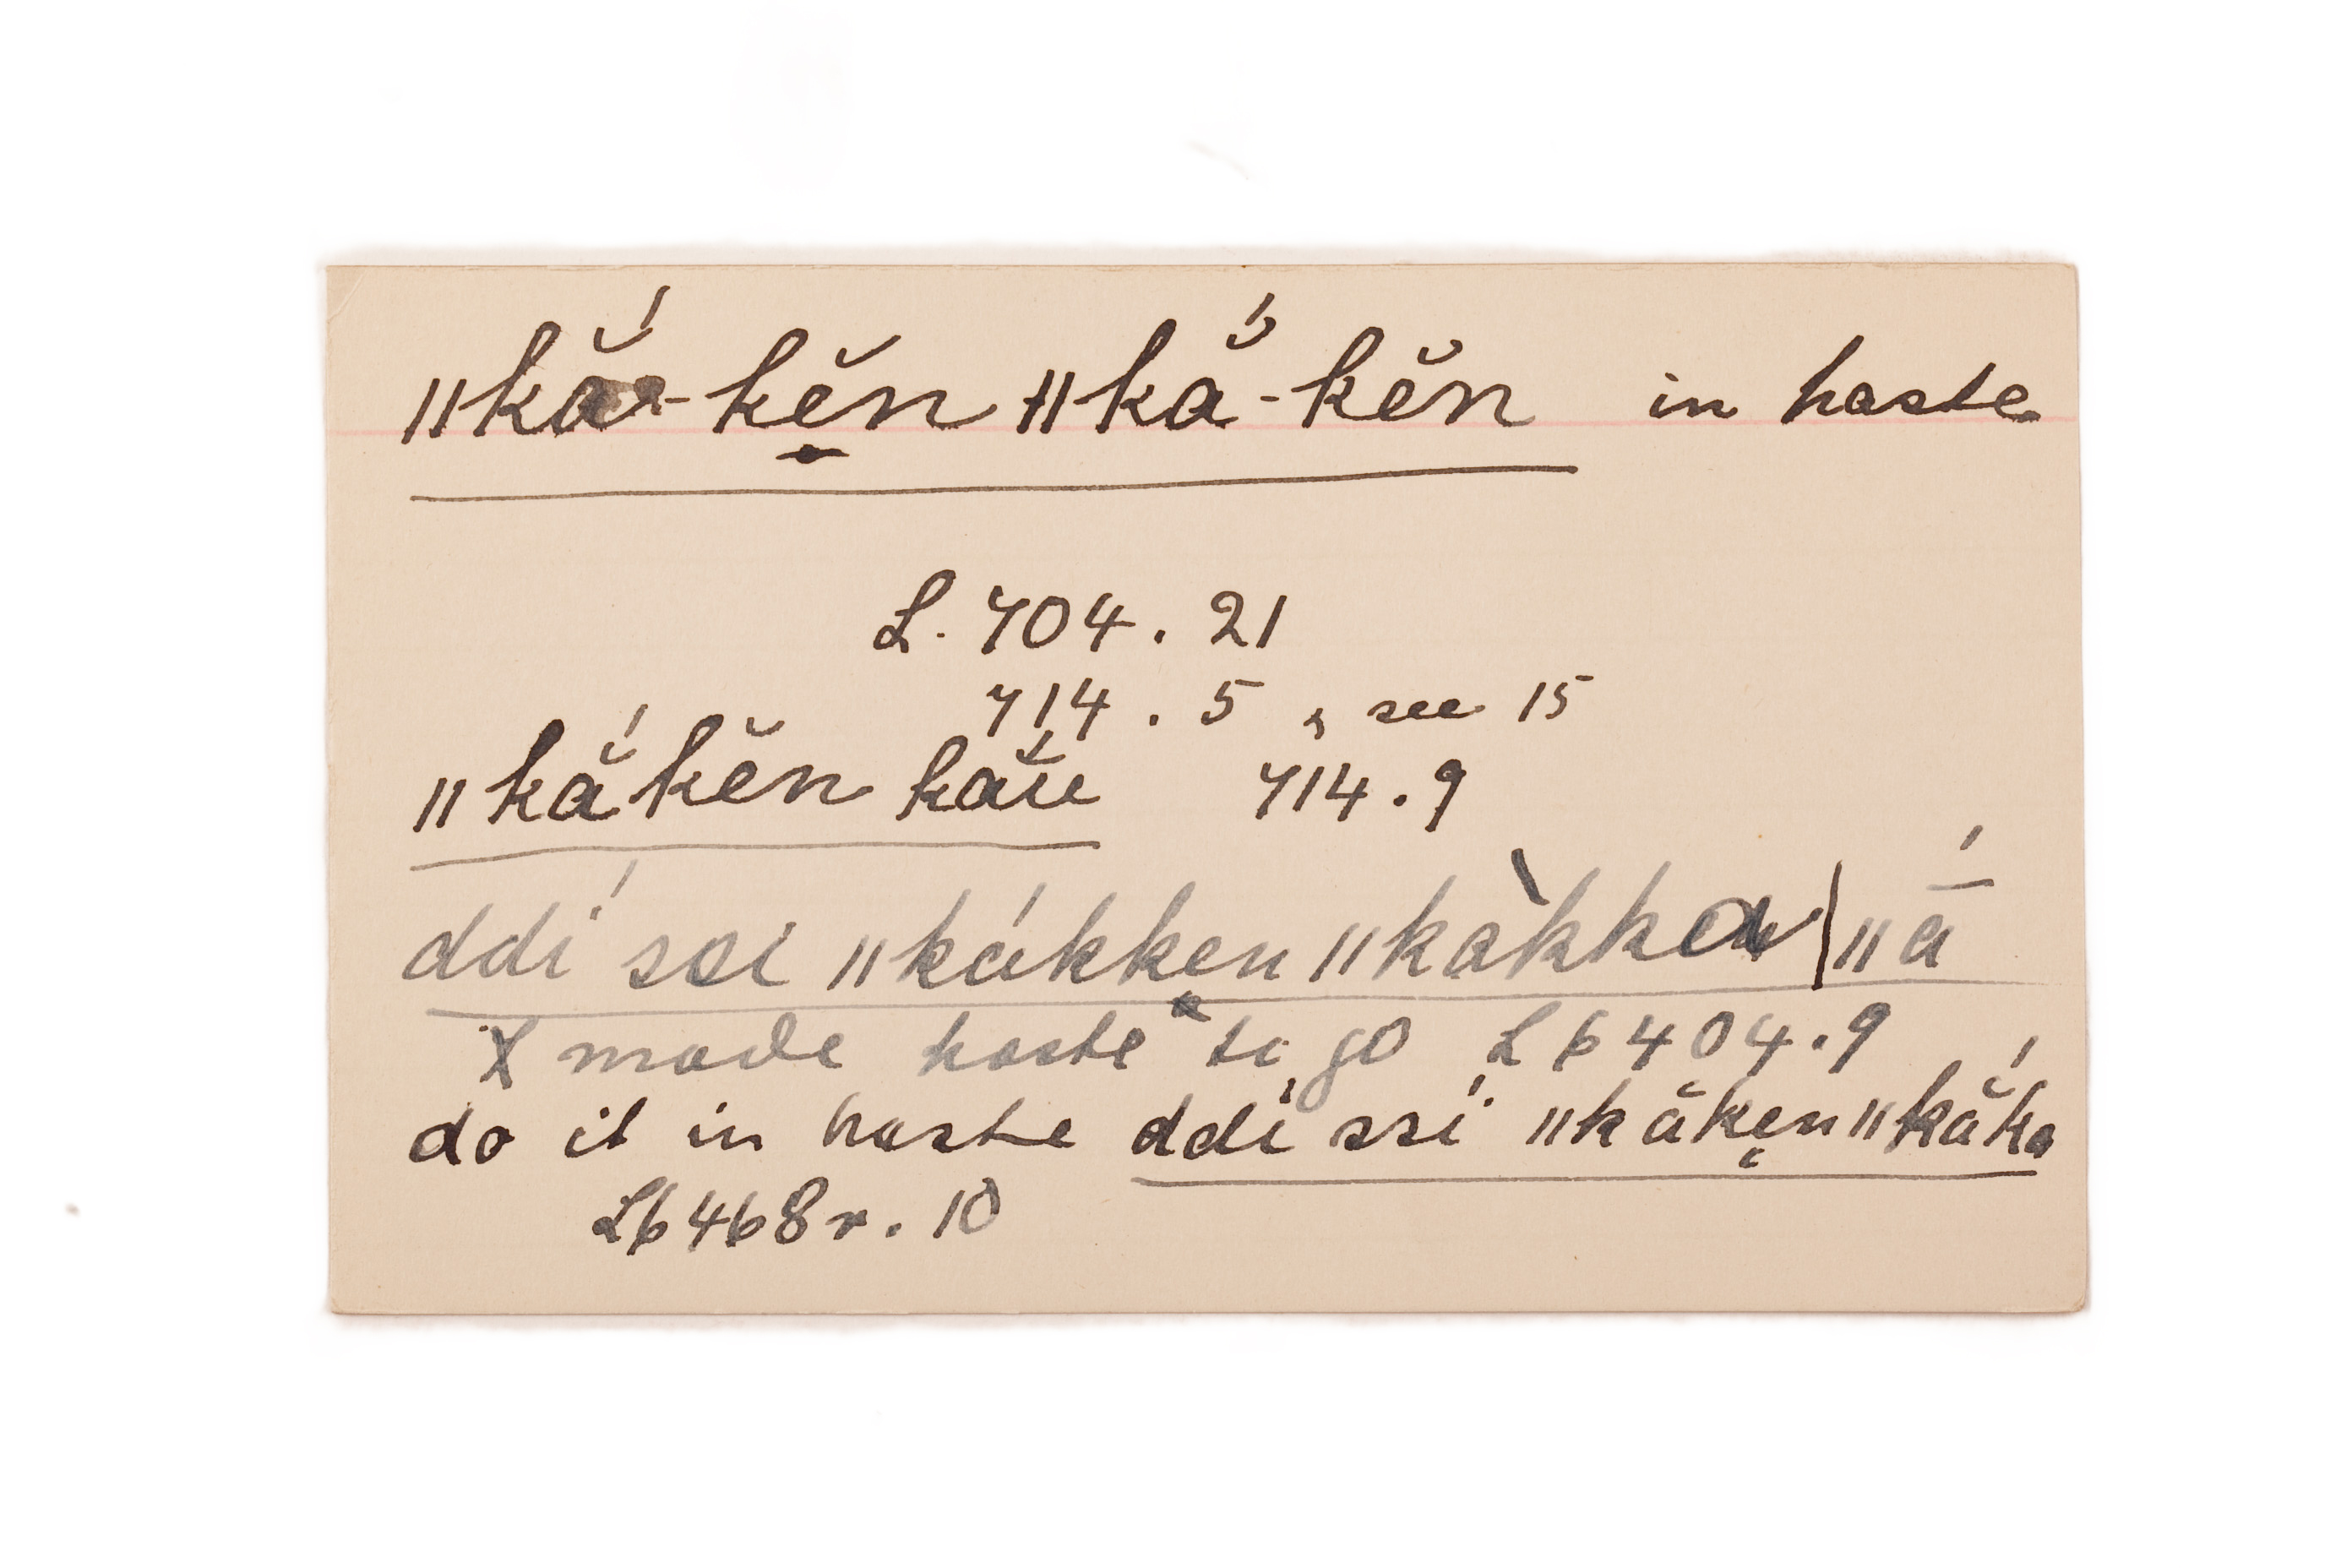 ǁkắ-kĕ̱n ǁkắ-kĕn in haste
L. 704. 21
714. 5, see 15
ǁkắkĕn
714.9
ddí sei ǁkákken ǁkàkka | ǁā́
X made haste to go L 6404.9
do it in haste ddí ssí ǁkăken ǁkắka
L6468r. 10